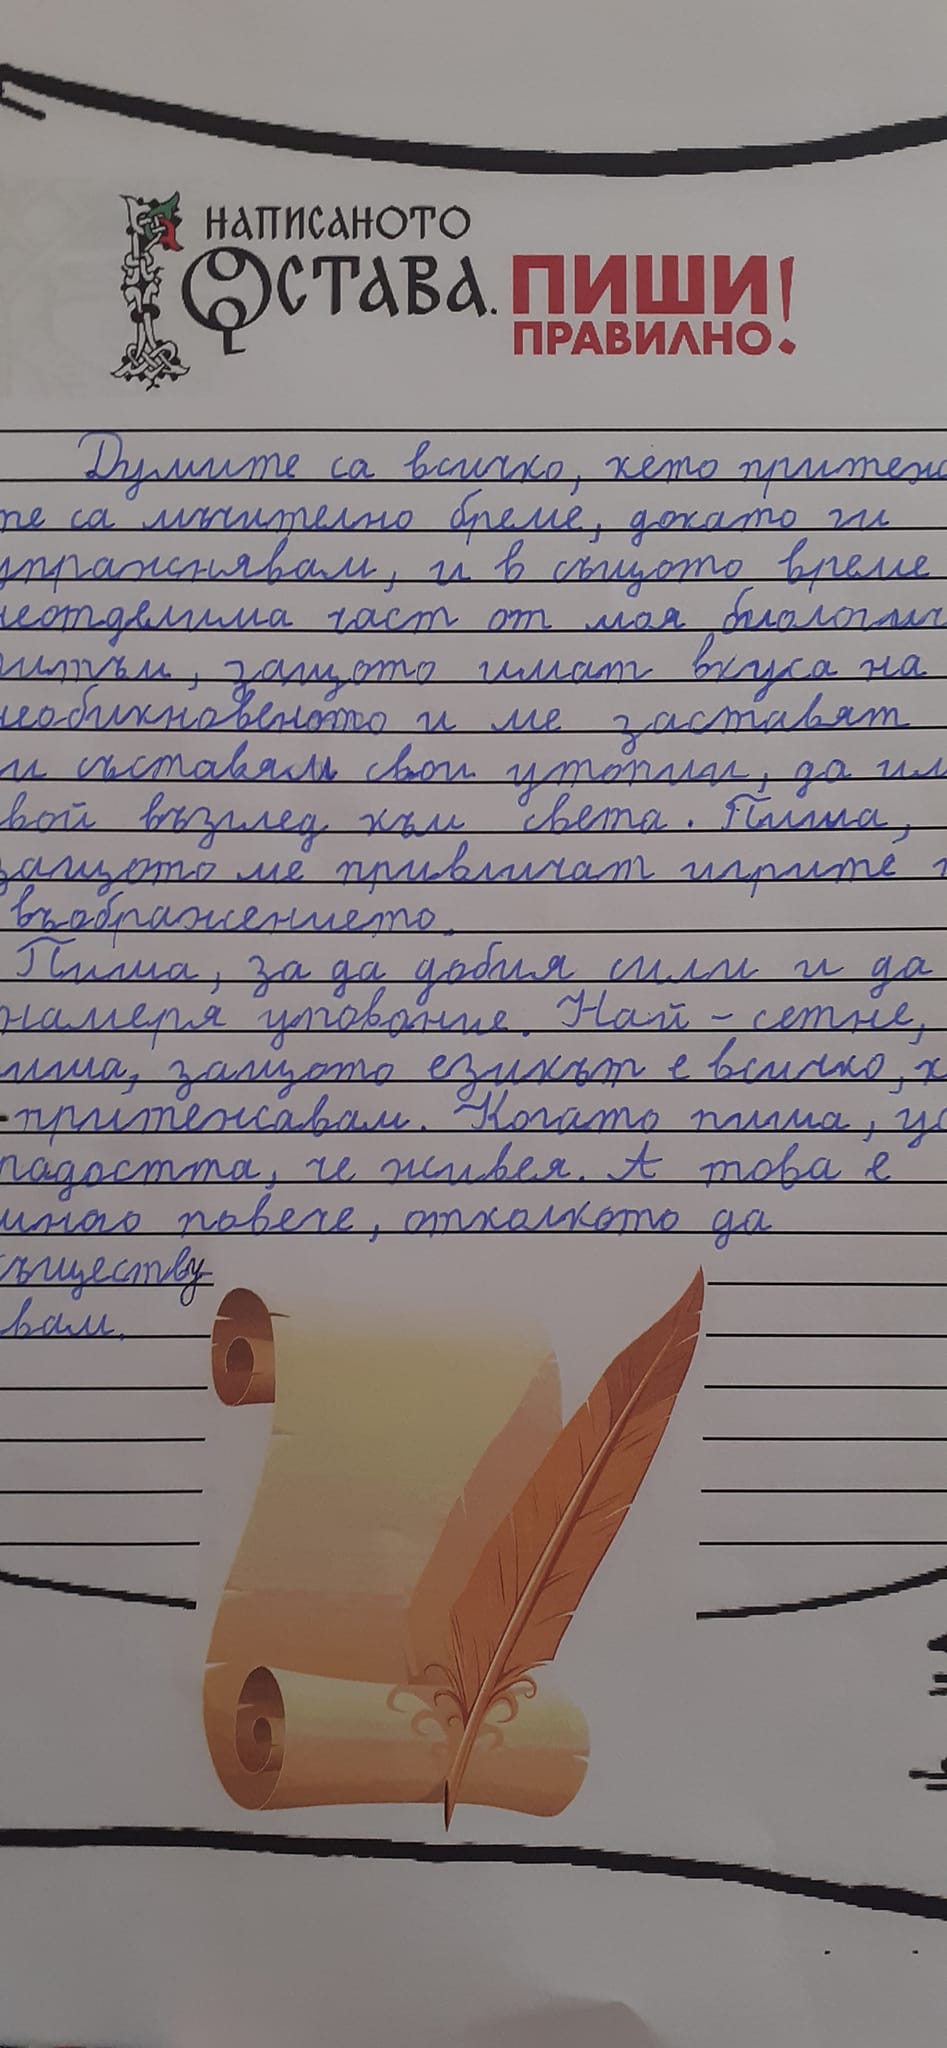 НАПИСАНОТО
ОСТАВА. ПИШИ!
ПРАВИЛНО
Думите са всичко, кето притежа
те са мъчително бреме, докато ги
упражнявам, и в същото време
неотделима част от моя биологич
ритъм, защото имат вкуса на
необикновеното и ме заставят
и съставям свои утопии, да им
вой възглед към света. Пиша,
защото ме привличат игрите н
въображението.
Пиша, за да добия сили и да
намеря упование. Най-сетне,
иша, защото езикът е всичко, к
притежавам. Когато пиша, ус
радостта, че живея. А това е
много повече, отколкото да
съществу
вам.